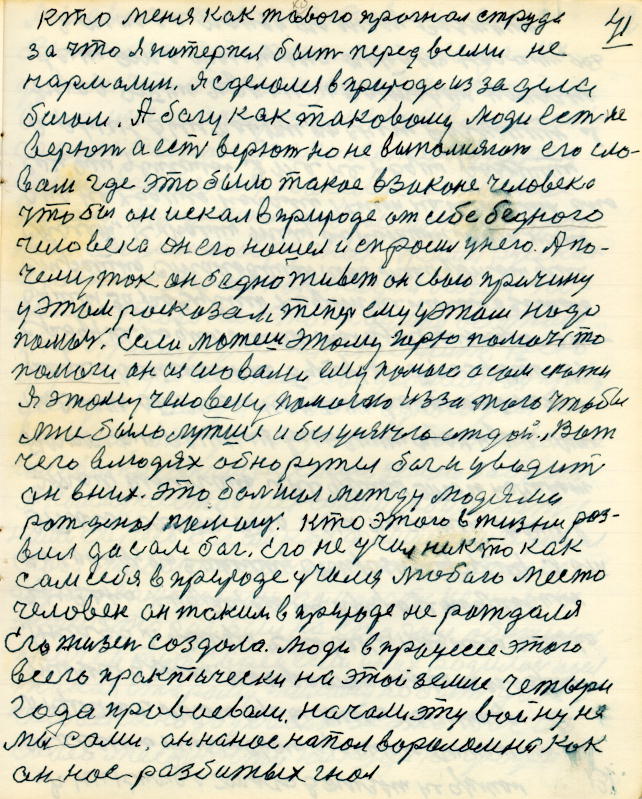 41
кто меня как тавого прогнал струда
за что я потерпел быт перед всеми не
нармалим. Я сделался в природе из за дела
богом. А богу как таковому люди ест не
верют а ест верют но не выполняют его сло-
вам где это было такое в законе человека
что бы он искал в природе от себе бедного
человека он его нашел и спросил у него. А по-
чему так он бедно живет он свою причину
у этом расказал, тепер ему у этом надо
помоч. Если можеш этому горю помоч то
помоги он и словами ему помого а сам скажи
Я этому человеку помогаю из за того чтобы
мне было лутше и без
чего в людях обноружися бог и уводит
он в них. Это большая между людями
рожденая помощ. Кто этого в жизни роз-
вил да сам бог. Его не учил никто как
сам себя в природе училя любого место
человек он таким в природе не рождаля
Его жизен создола. Люди в процесе этого
всего практически на этой земле четыри
года провоевали. Начали эту войну не
мы сами, он на нас напол вороломна как
он нас разбитых гнал